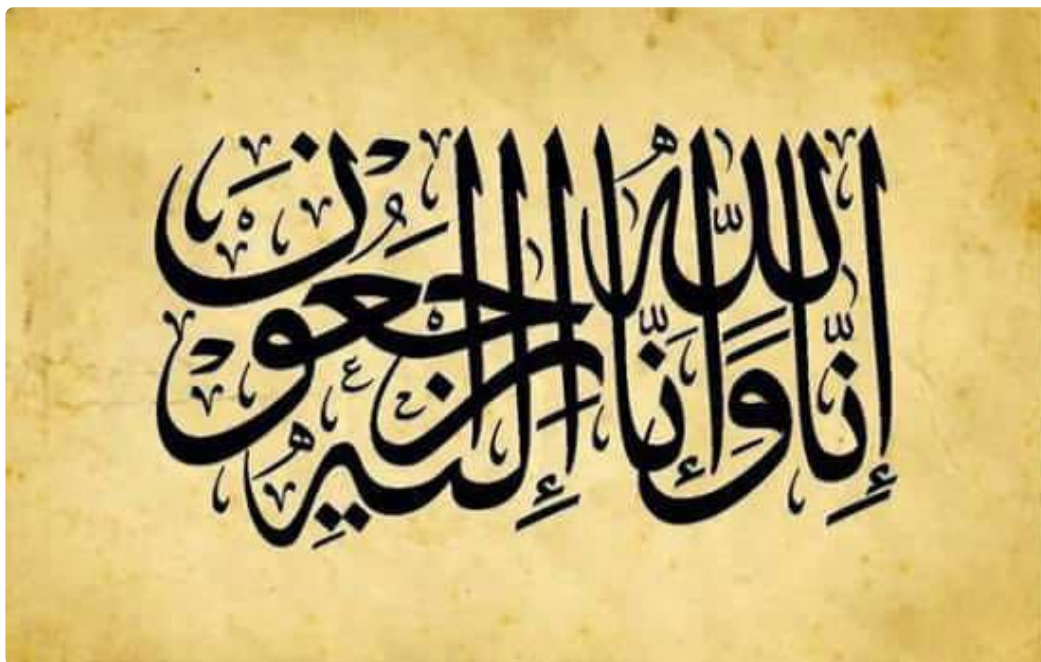 إِنَّا لِلّٰهِ وَإِنَّا إِلَيْهِ رَاجِعُونَ